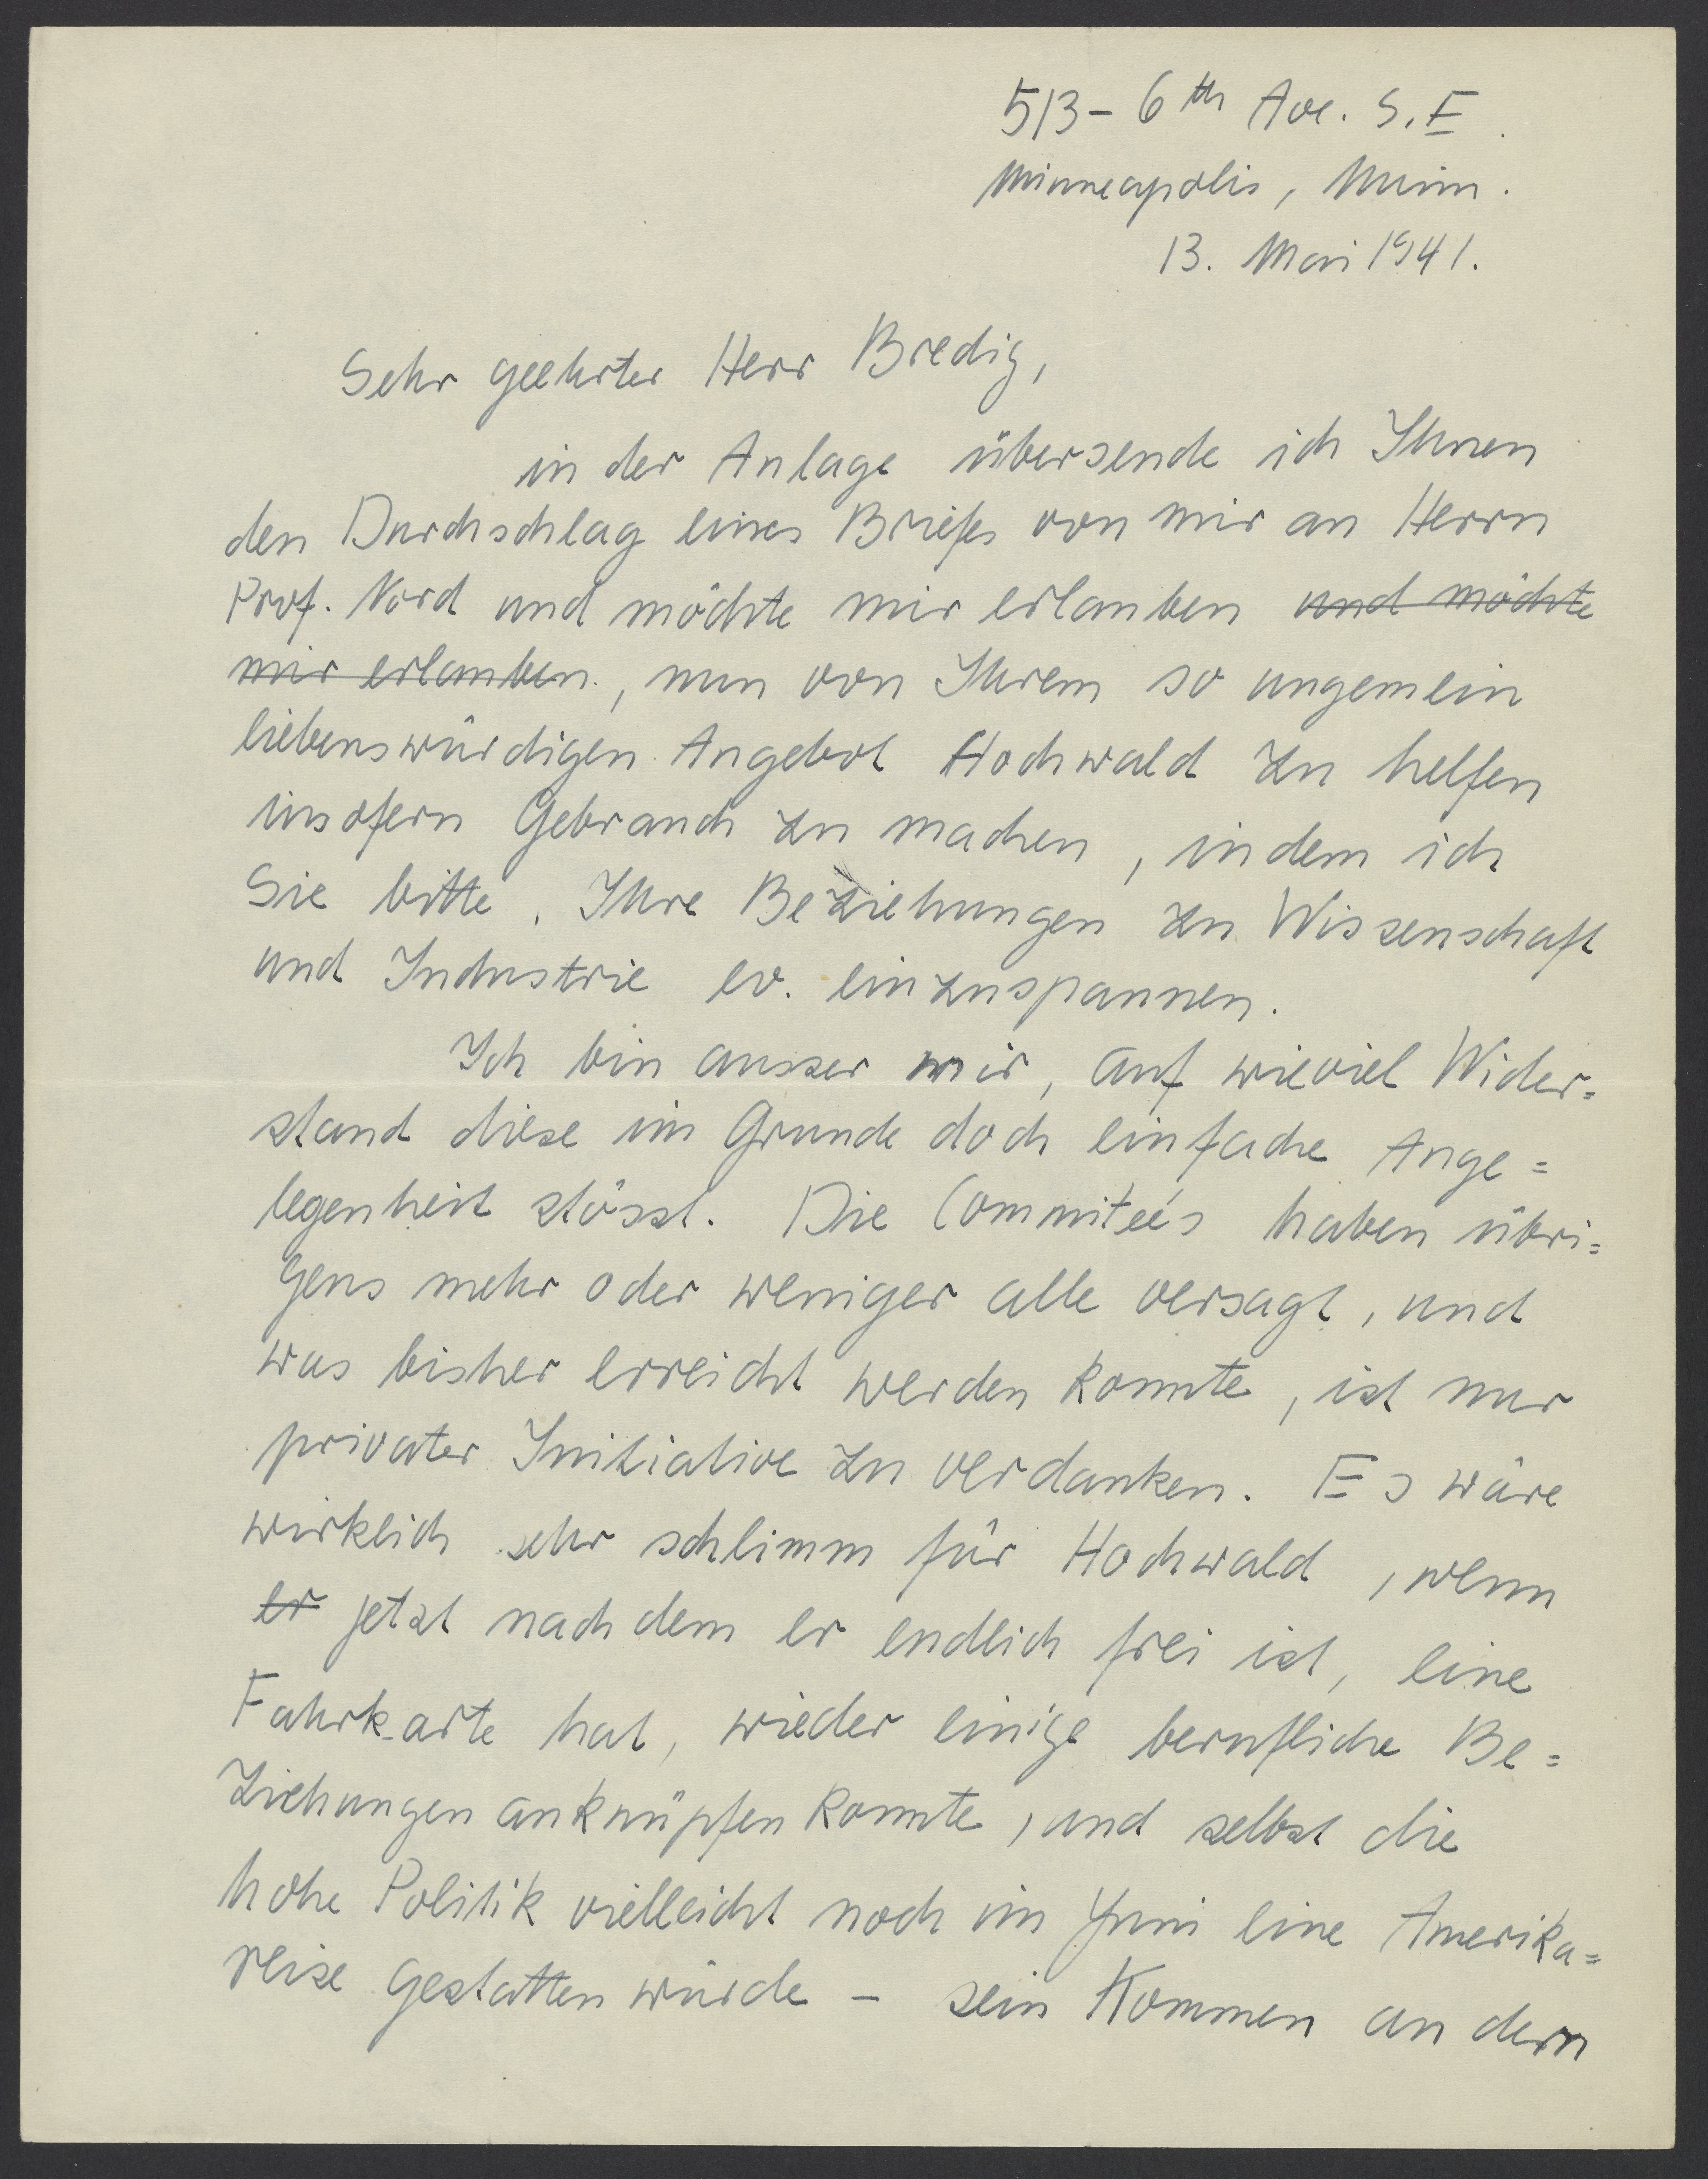 513 - 6th Ave. S.E.
Minneapolis, Minn.
13. Mai 1941.
Sehr geehrter Herr Bredig,
in der Anlage übersende ich Ihnen
den Durchschlag eines Briefes von mir an Herrn
Prof. Nord und möchte mir erlauben und möchte
mir erlauben, nun von Ihrem so ungemein
liebenswürdigen Angebot Hochwald zu helfen
insofern Gebrauch zu machen, indem ich
Sie bitte, Ihre Beziehungen zu Wissenschaft
und Industrie ev. einzuspannen.
Ich bin ausser mir, auf wieviel Wider=
stand diese im Grunde doch einfache Ange=
legenheit stösst. Die Commiteé's haben übri=
gens mehr oder weniger alle versagt, und
was bisher erreicht werden konnte, ist nur
privater Initiative zu verdanken. Es wäre
wirklich sehr schlimm für Hochwald, wenn
er jetzt nachdem er endlich frei ist, eine
Fahrkarte hat, wieder einige berufliche Be=
ziehungen anknüpfen konnte, und selbst die
hohe Politik vielleicht noch im Juni eine Amerika=
reise gestatten würde - sein Kommen an dem